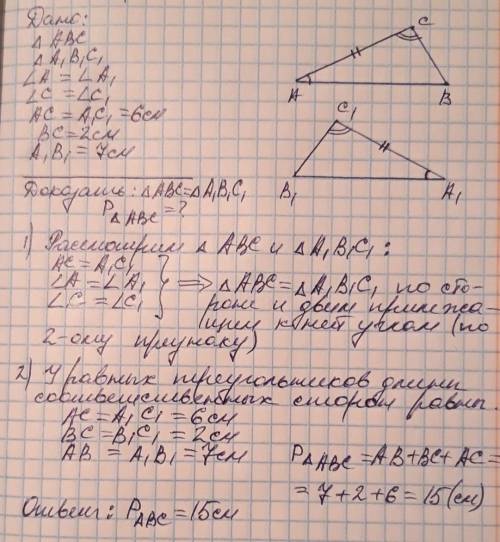 Дано:
△ ABC
△ A₁B₁C₁
∠A = ∠A₁
∠C = ∠C₁
AC = A₁C₁ = 6см
BC = 2см
A₁B₁ = 7см
Доказать: △ABC = △A₁B₁C₁
P△ABC = ?
C
A
B
C₁
B₁
A₁
1) Рассмотрим △ ABC и △ A₁B₁C₁:
AC = A₁C₁
∠A = ∠A₁
∠C = ∠C₁
} ⇒ △ABC = △A₁B₁C₁ по сто-
роне и двум прилежа-
щим к ней углам (по
2-ому признаку)
2) У равных треугольников длины
соответственных сторон равны.
AC = A₁C₁ = 6см
BC = B₁C₁ = 2см
AB = A₁B₁ = 7см
P△ABC = AB + BC + AC =
= 7 + 2 + 6 = 15 (см)
Ответ: P ABC = 15см